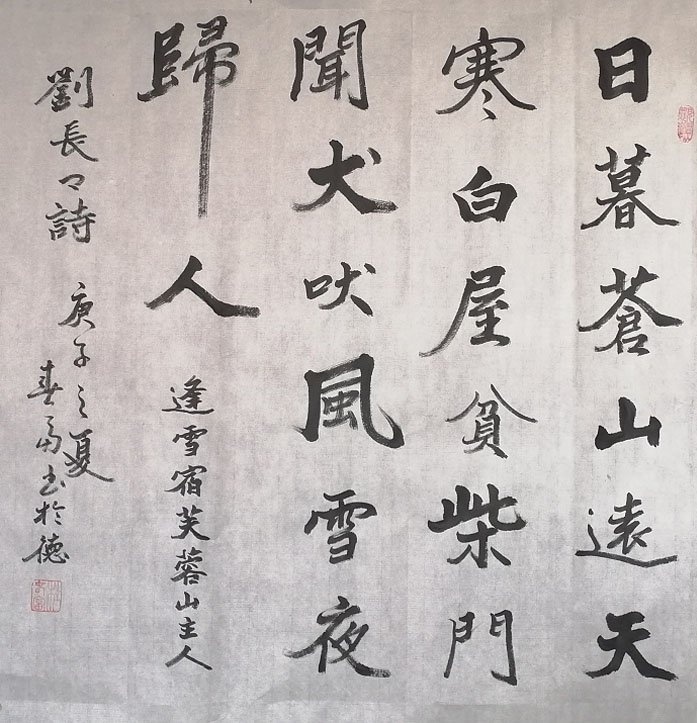 日暮蒼山遠天
寒白屋貧柴門
聞犬吠風雪夜
歸人
逢雪宿芙蓉山主人
劉長々詩 庚子之夏
春
於德